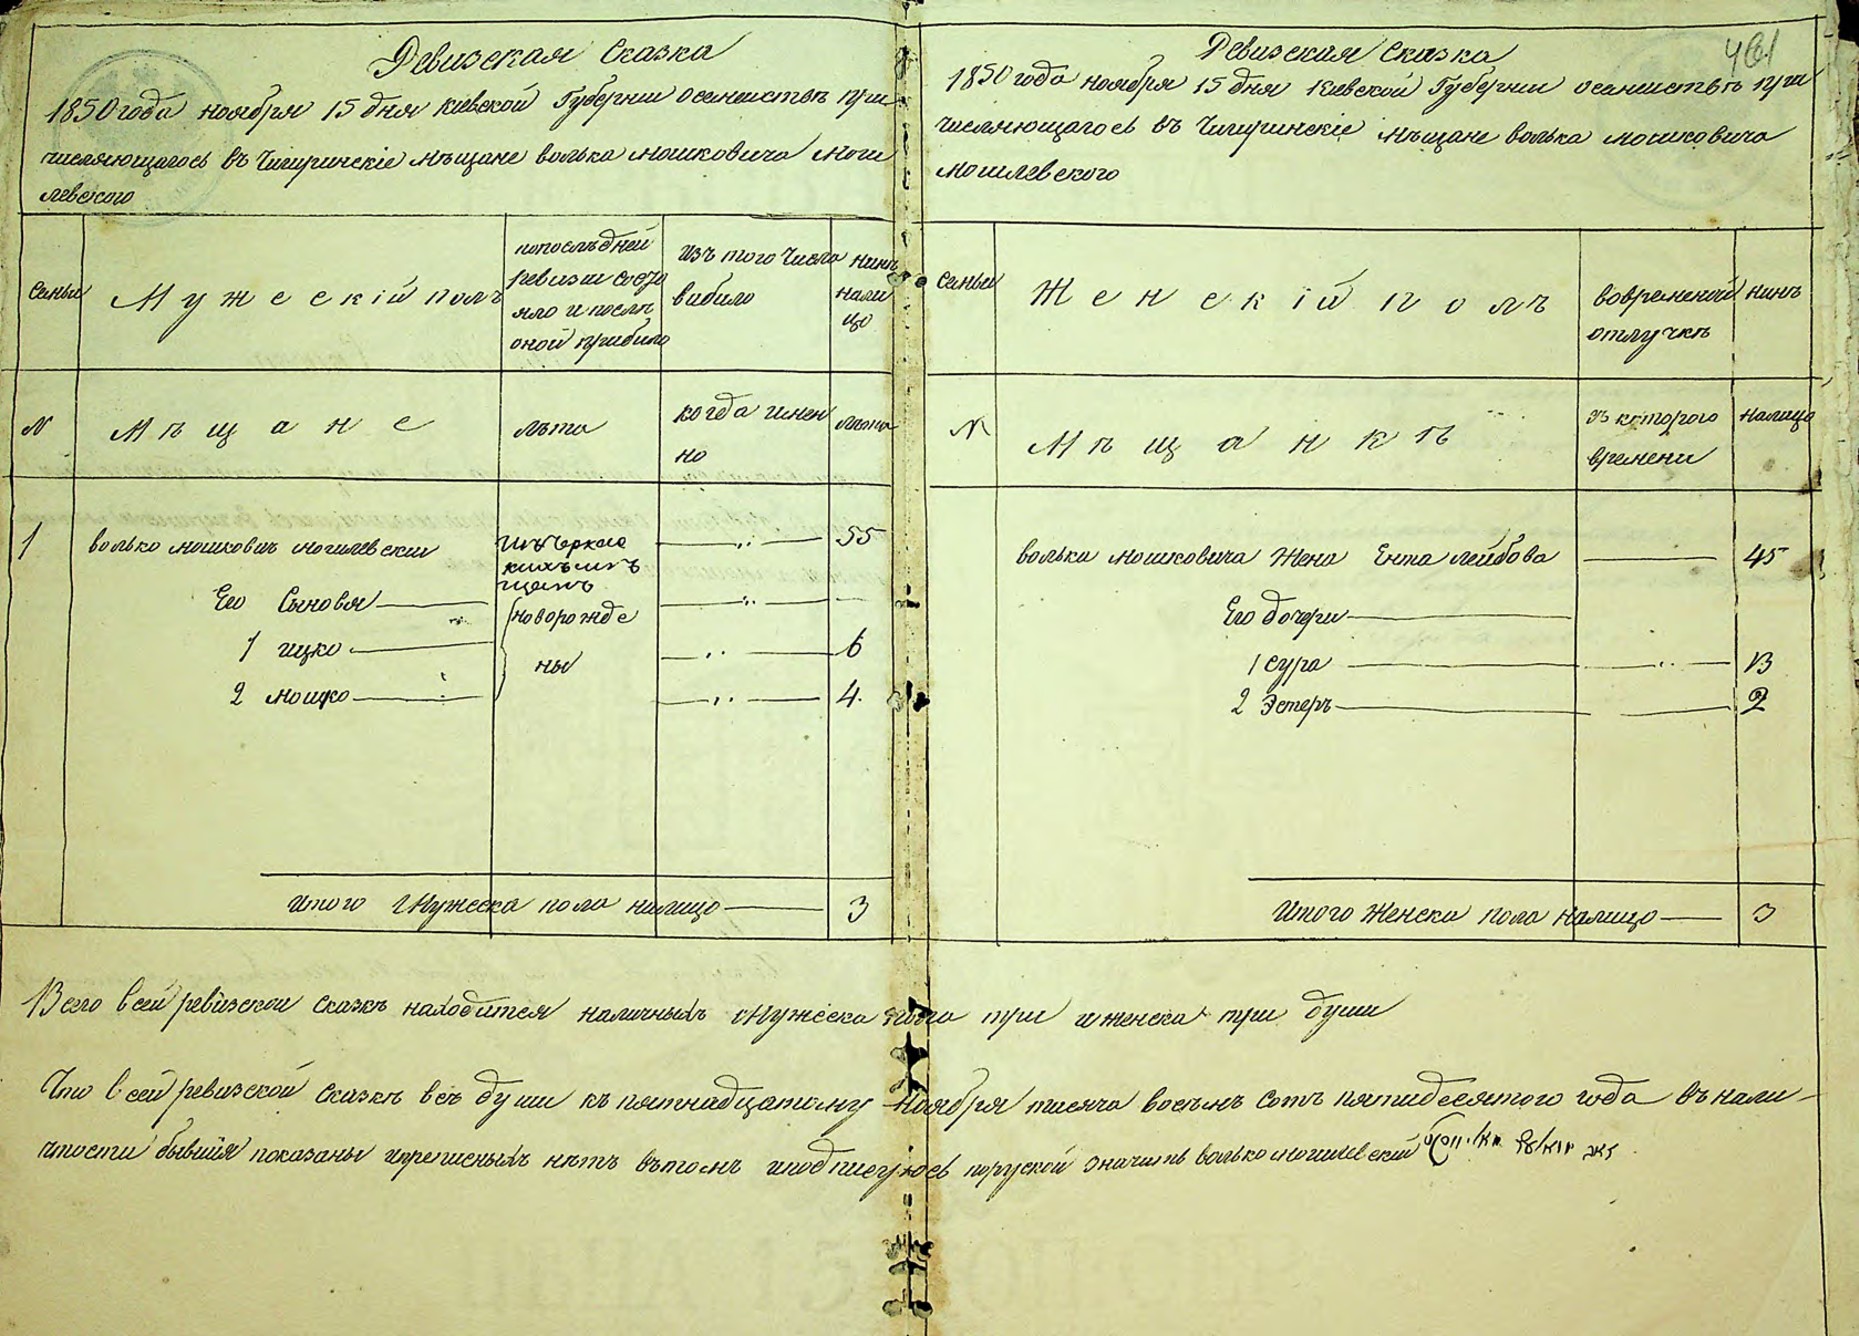 Ревизская Сказка
1850 года ноября 15 дня киевской Губернии осемействѣ при
числяющагось въ Чигиринскіе мѣщане волька мошковича моги
левского
Семьи
Мужескій полъ
попослѣдней
ревизіи состо
яло и послѣ
оной прибило
Изъ того Числа
вибило
нинѣ
нали
цо
N
Мѣщане
лѣта
когда имен
но
лѣта
1
волько мошкович могилевскии
Изъ Черкас
кихъ мѣ
щанъ
55
Его Сыновя
новорожде
1 ицко
ны
6
2 мошко
4
Итого Мужеска пола налицо
3
461
Ревизская Сказка
1850 года ноября 15 дня Киевской Губернии осемействѣ при
числяющагось въ Чигиринскіе мѣщане волька мошковича
могилевского
Семьи
Женскій полъ
вовременой
отлучкѣ
нинѣ
N
Мѣщанкѣ
Съ которого
времени
налицо
волька мошковича Жена Ента Лейбова
45
Его дочери
1 сура
13
2 Эстеръ
2
Итого Женска пола налицо
3
Всего всей ревизскои сказкѣ находится наличныхъ Мужеска пола три иженска три души
Что всей ревизской Сказкѣ всѣ души къ пятнадцатому Ноября тисяча восемъ сотъ пятидесятого года въ нали-
чности бывшия показаны ипрописныхъ нѣтъ вътомъ иподписуюсь поруской значить волько могилевский